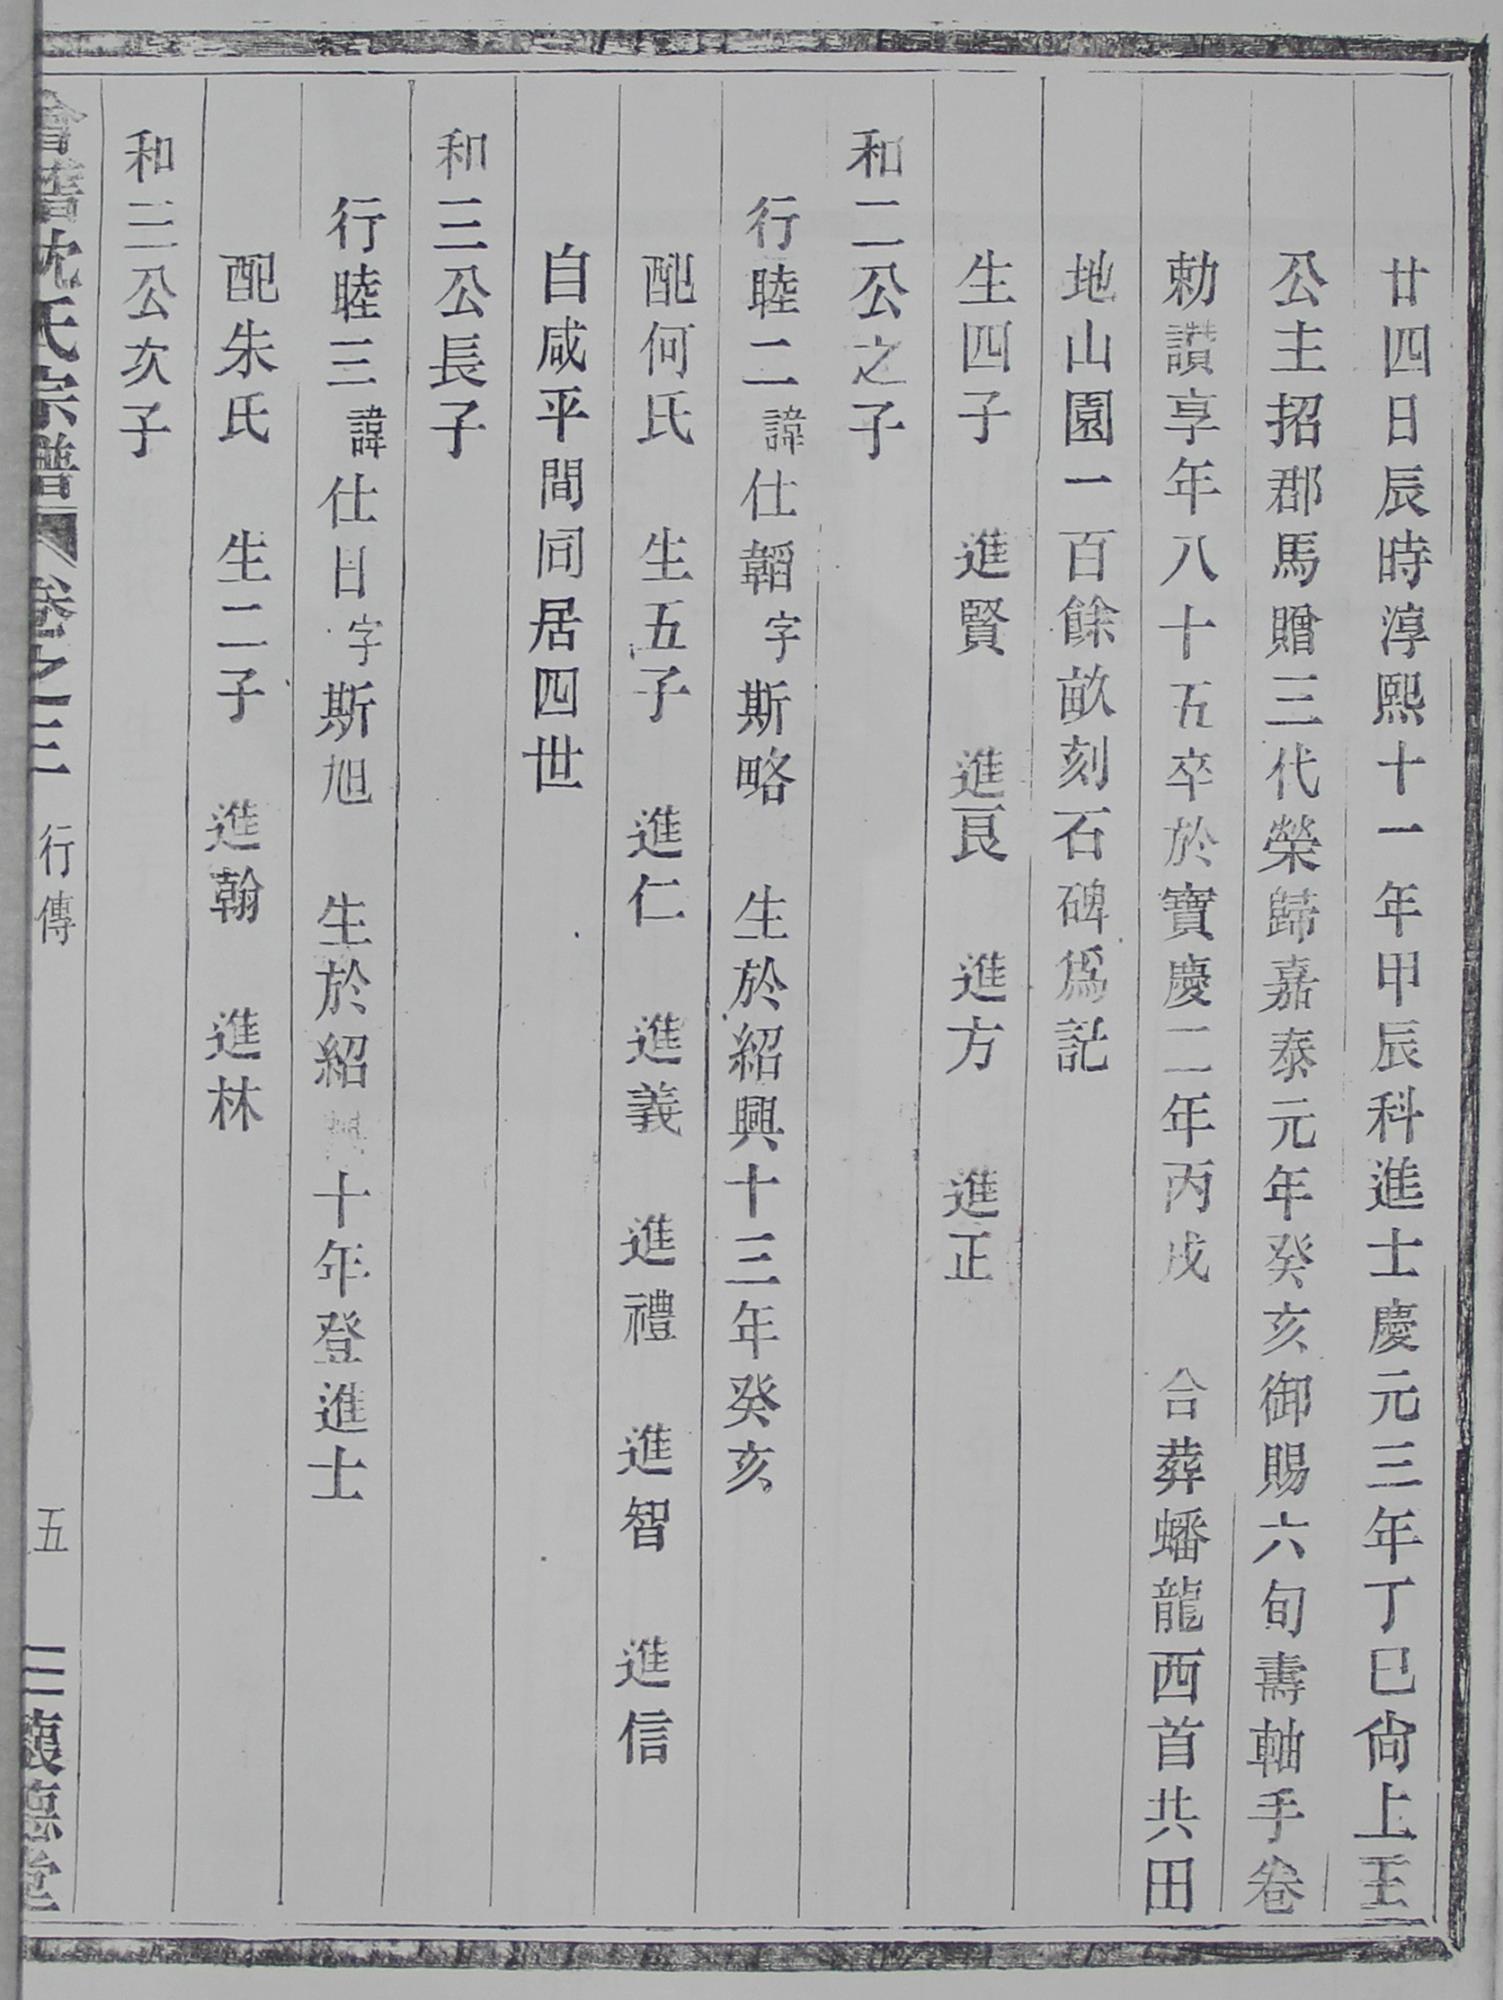 廿四日辰時淳熙十一年甲辰科進士慶元三年丁巳尙上王
公主招郡馬贈三代榮歸嘉泰元年癸亥御賜六旬壽軸手卷
勅讚享年八十五卒於寶慶二年丙戌　合葬蟠龍西首共田
地山園一百餘畝刻石碑爲記
生四子　進賢　進艮　進方　進正
和二公之子
行睦二諱仕韜字斯略　生於紹興十三年癸亥
配何氏　生五子　進仁　進義　進禮　進智　進信
自咸平間同居四世
和三公長子
行睦三諱仕日字斯旭　生於紹興十年登進士
配朱氏　生二子　進翰　進林
和三公次子
會稽沈氏宗譜　卷之三　行傳　五　三馥德堂